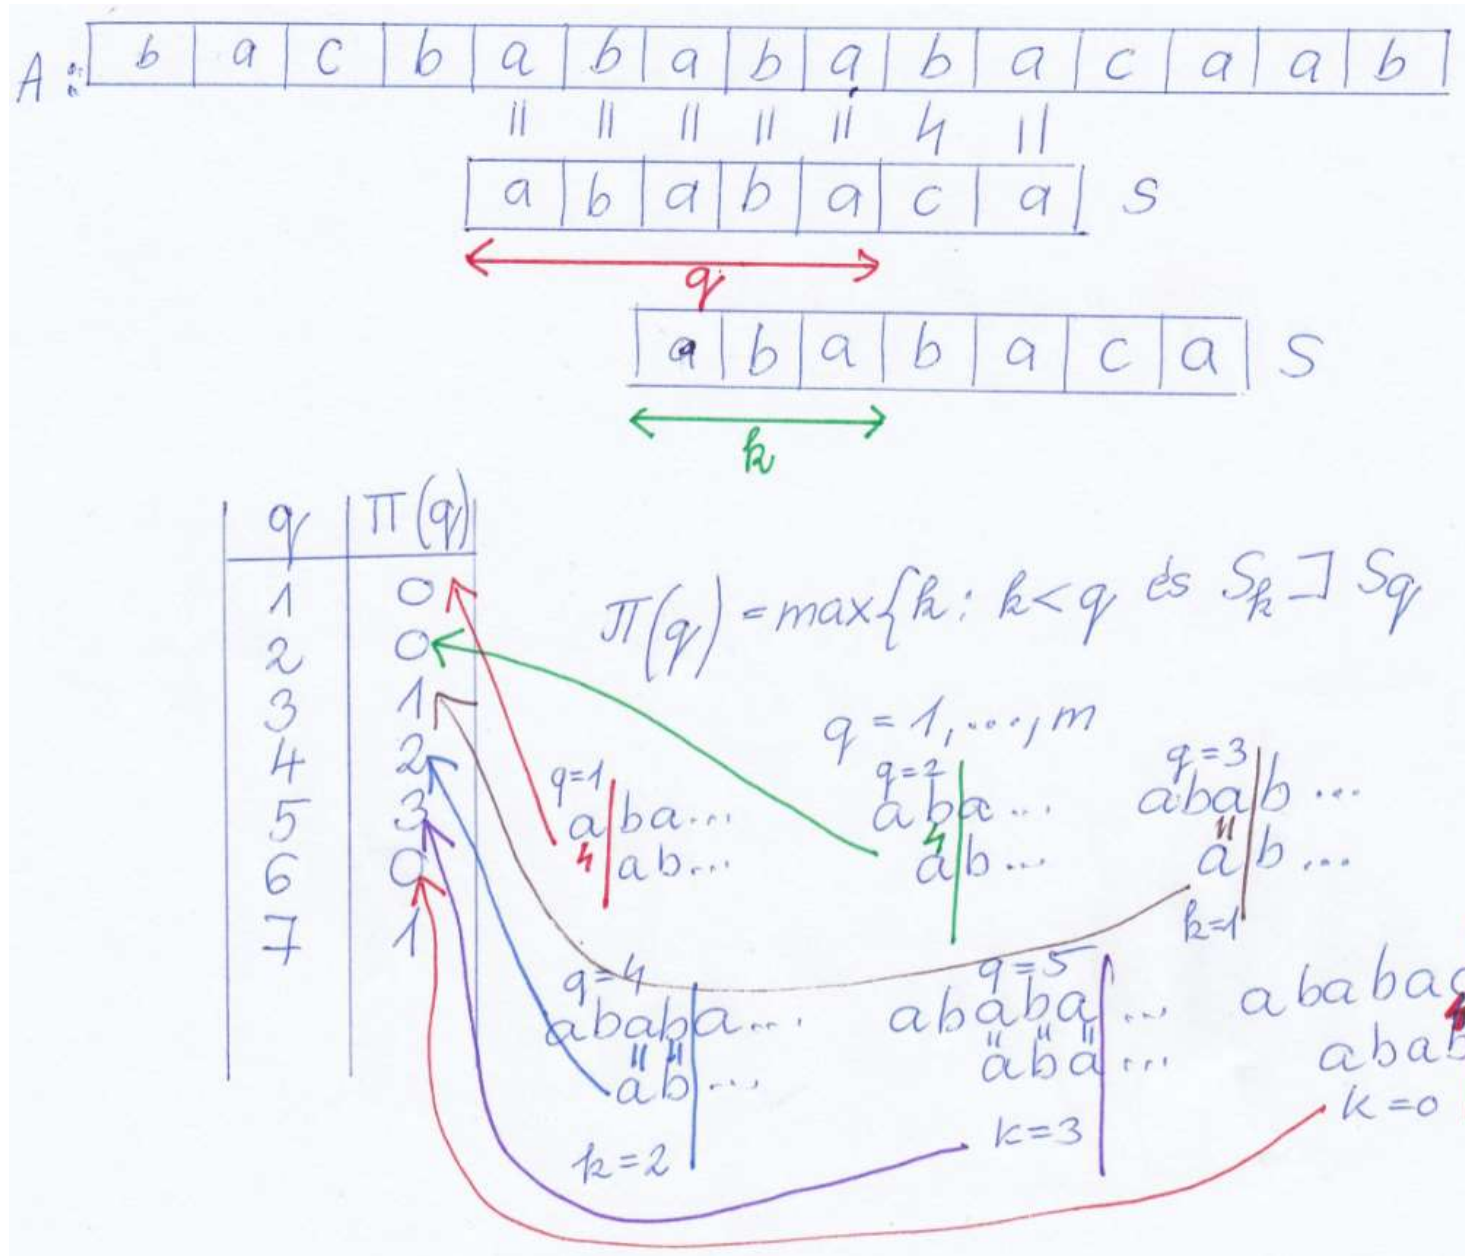 A: b a c b a b a b a b a c a a b
= = = = = ≠ =
a b a b a c a S
q
a b a b a c a S
k
q π(q)
1 0
2 0
3 1
4 2
5 3
6 0
7 1
π(q) = max{k: k<q és S_k ⊐ S_q
q = 1,...,m
q=1
a|ba...
ab...
q=2
aba...
ab...
q=3
aba|b...
ab...
k=1
q=4
ababa...
ab...
k=2
q=5
ababa...
aba...
k=3
ababac
abab
k=0